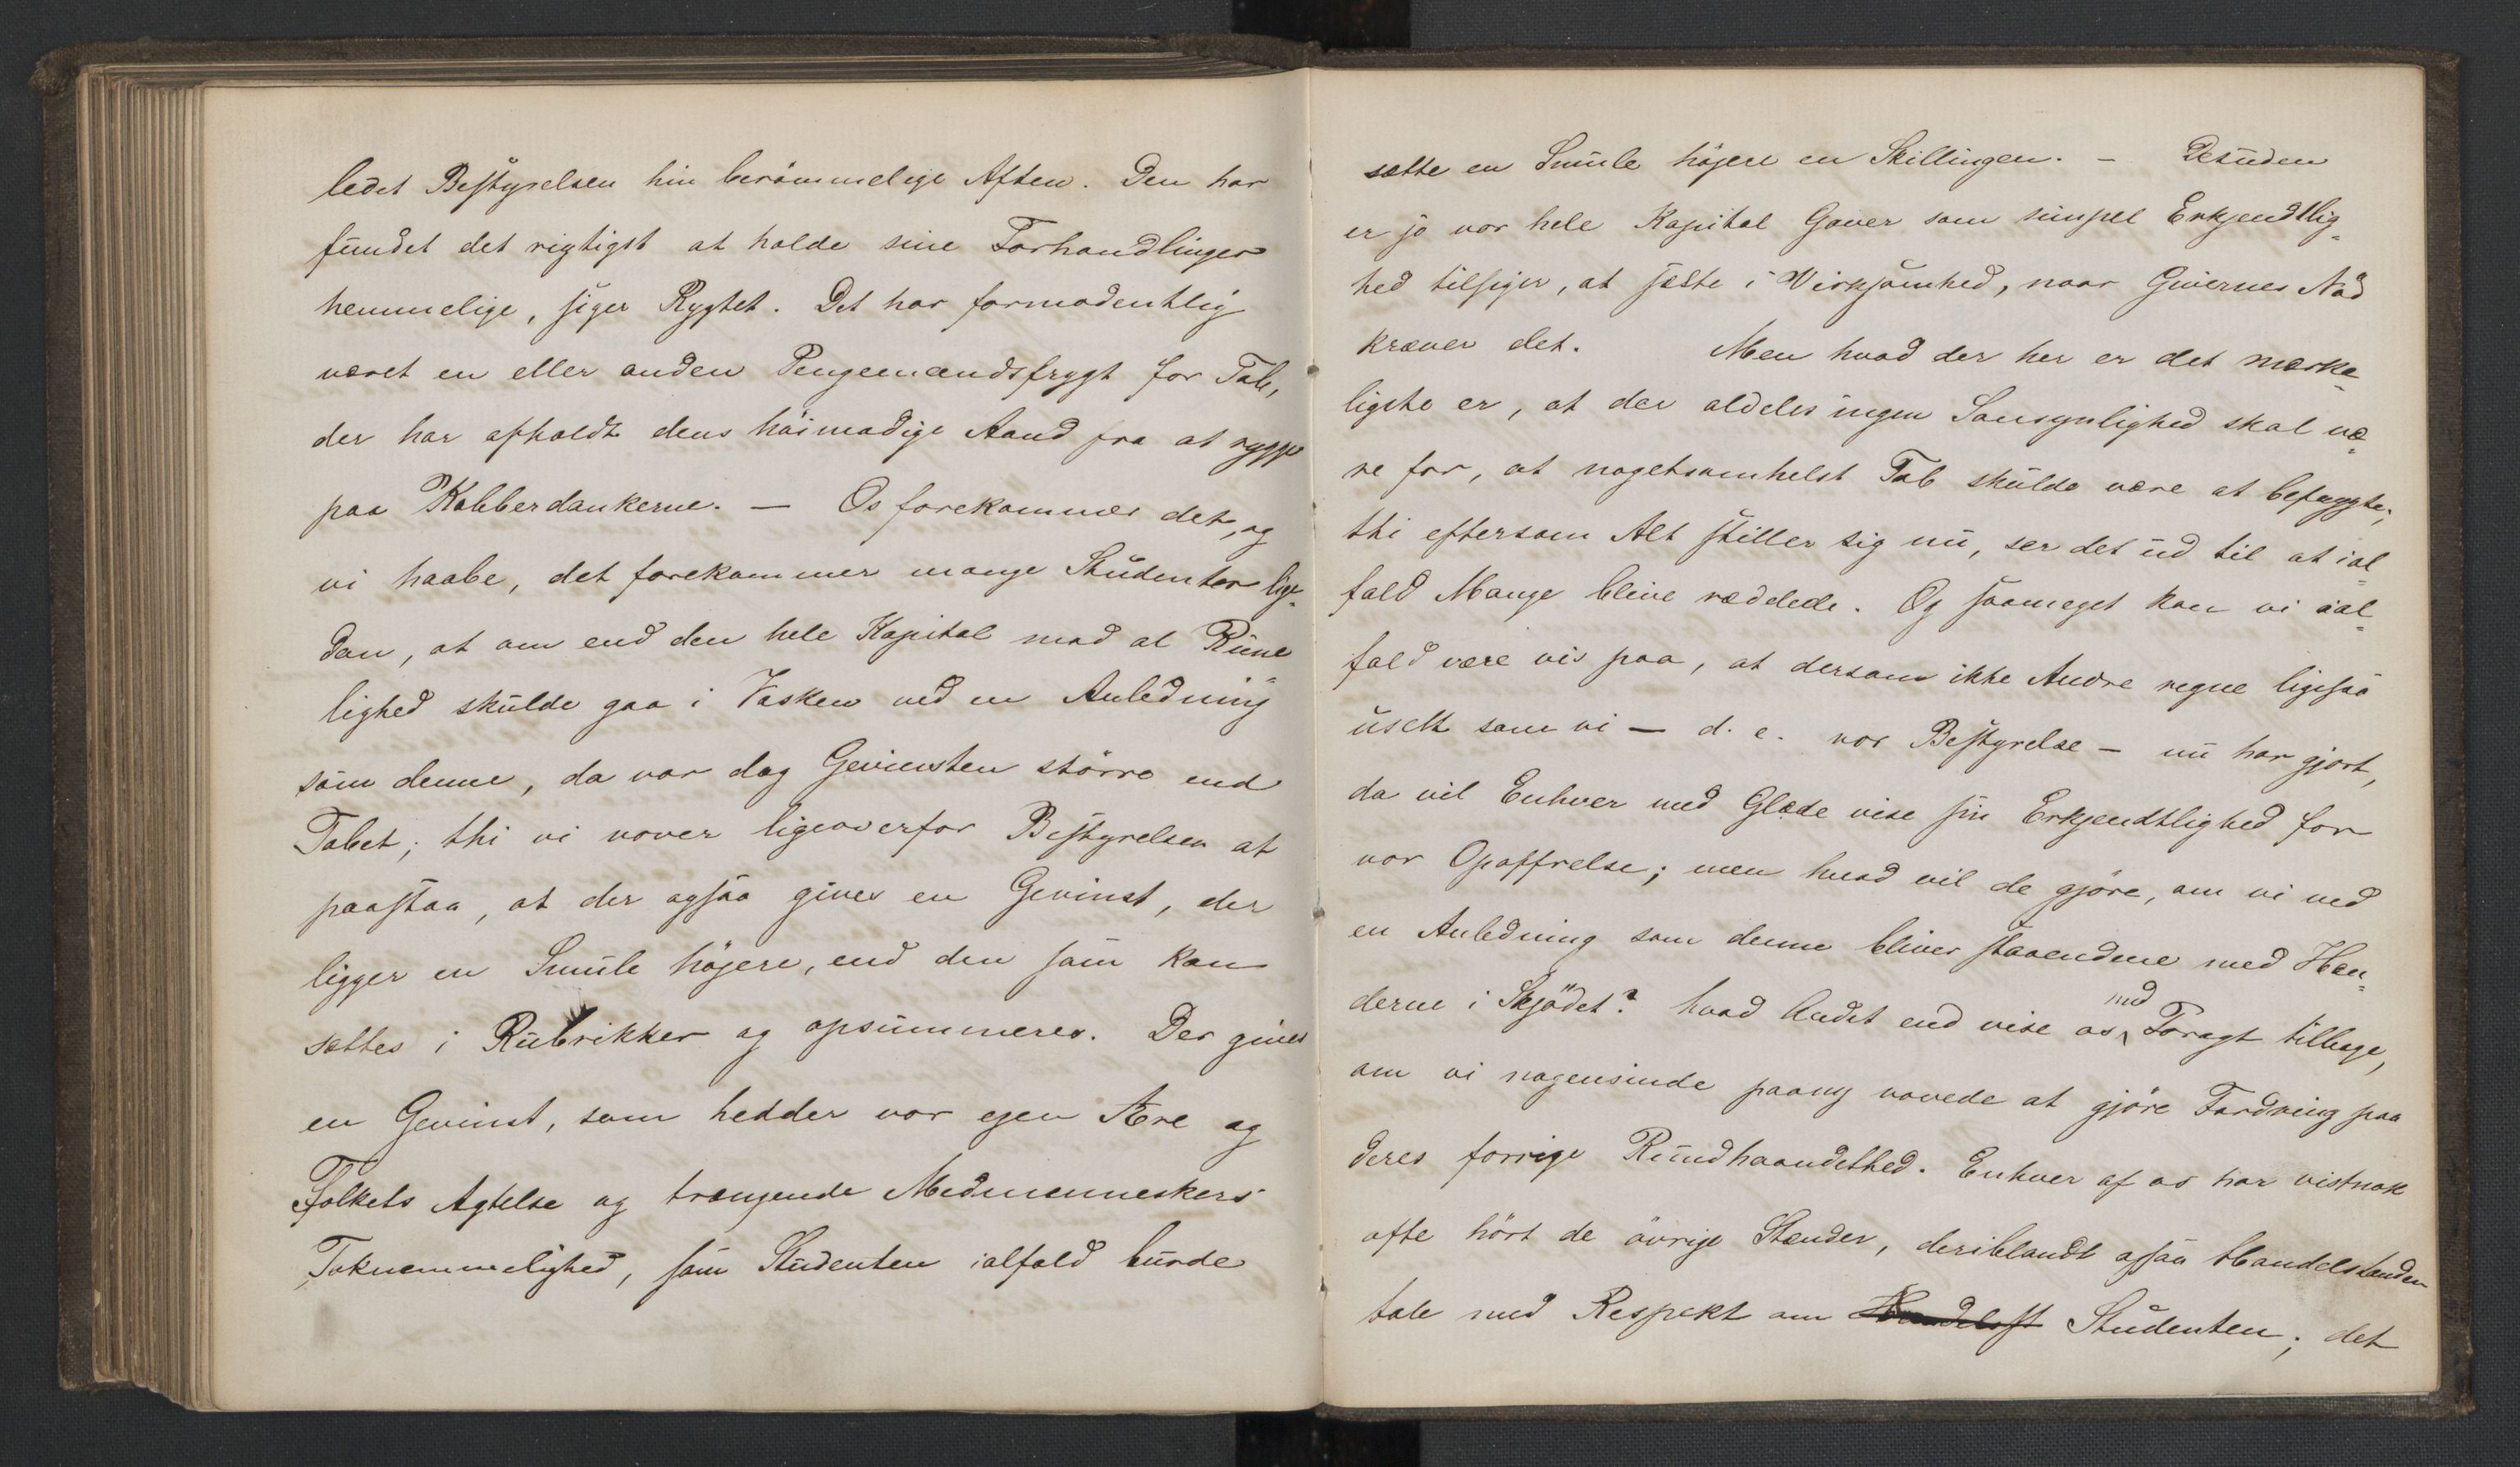 ledet Bestyrelsen hin berömmelige Aften. Den har
fundet det rigtigst at holde sine Forhandlinger
hemmelige, siger Rygtet. Det har formodentlig
været en eller anden Pengemandsfrygt for Tab,
der har afholdt dens höimodige Aand fra at rygge
paa Kobberdankerne. — Os forekommer det, og
vi haabe, det forekommer mange Studenter lige-
dan, at om end den hele Kapital mod al Rime
lighed skulde gaa i Vasken ved en Anledning
som denne, da var dog Gevinsten större end
Tabet; thi vi vover ligeoverfor Bestyrelsen at
paastaa, at der ogsaa gives en Gevinst, der
ligger en Smule höjere, end den som kan
sættes i Rubrikker og opsummeres. Der gives
en Gevinst, som hedder vor egen Ære og
Folkets Agtelse og trængende Medmenneskers
Taknemmelighed, som Studenten ialfald burde
sætte en Smule höjere en Skillingen. — Desuden
er jo vor hele Kapital Gaver som simpel Erkjendtlig-
hed tilsiger, at sætte i Virksomhed, naar Givernes Nöd
kræver det. Men hvad der her er det mærke-
ligste er, at der aldeles ingen Sansynlighed skal væ-
re for, at nogetsomhelst Tab skulde være at befrygte;
thi eftersom Alt stiller sig nu, ser det ud til at ial-
fald Mange blive ræddede. Og saameget kan vi ial-
fald være vis paa, at dersom ikke Andre regne ligesaa
uselt som vi — d. e. vor Bestyrelse — nu har gjort,
da vil Enhver med Glæde vise sin Erkjendtlighed for
vor Opoffrelse; men hvad vil de gjöre, om vi ved
en Anledning som denne bliver staaendene med Hæn-
derne i Skjödet? hvad Andet end vise os med Foragt tilbage,
om vi nogensinde paany vovede at gjöre Fordring paa
deres forrige Rundhaandethed. Enhver af os har vistnok
ofte hört de övrige Stænder, deriblandt ogsaa Handelstanden
tale med Respekt om Handelsst Studenten; det